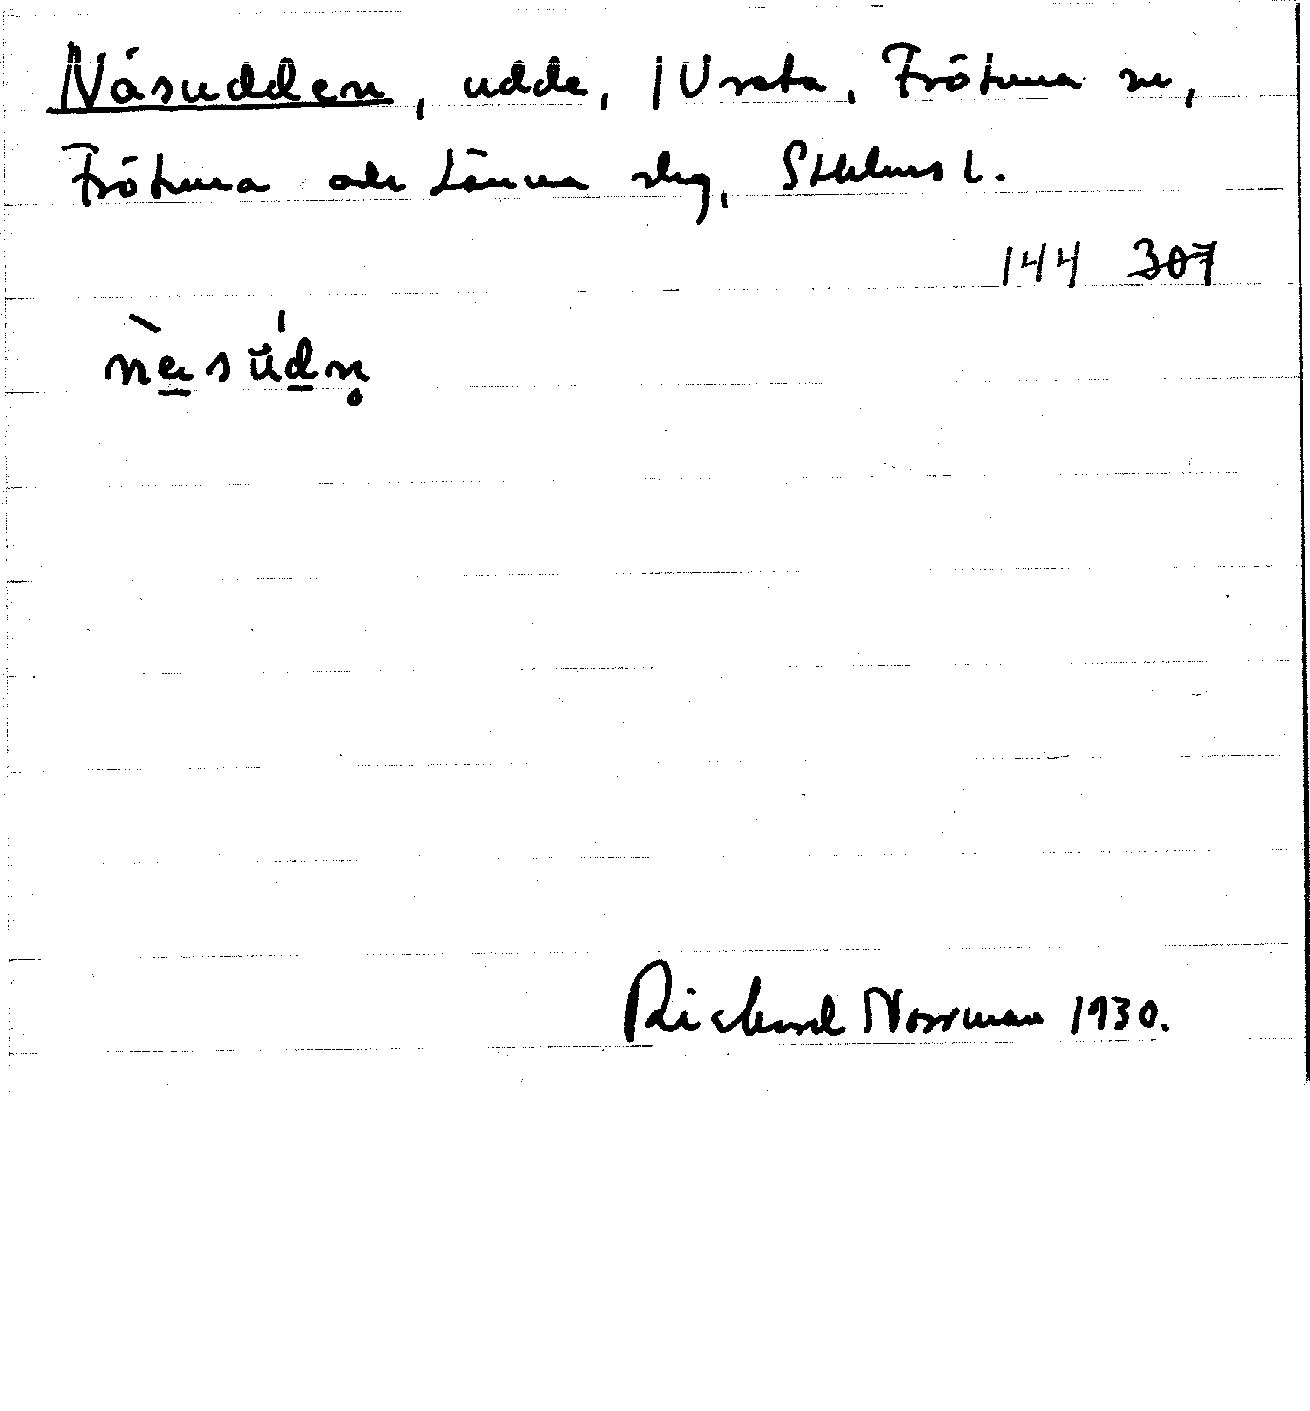 Näsudden, udde, 1 Ursta, Frötuna sn,
Frötuna och Länna skg, Sthlms l.
144 307
Richard Norrman 1930.